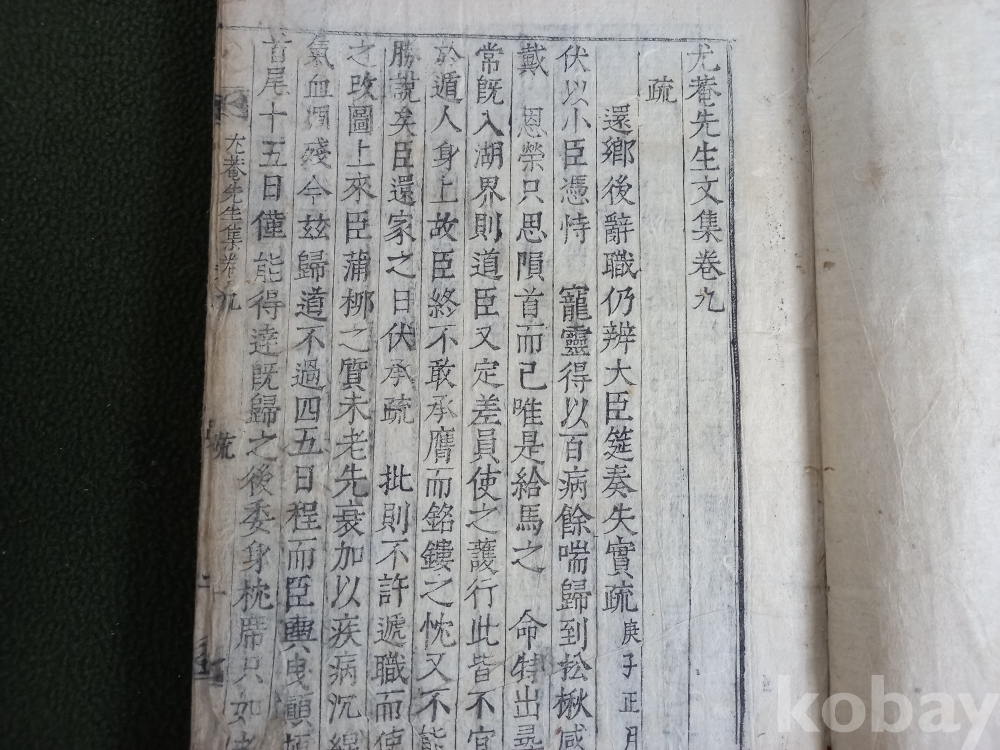 尤菴先生文集卷九
疏
還鄉後辭職仍辨大臣筵奏失實疏 庚子正月
伏以小臣憑恃 寵靈得以百病餘喘歸到松楸感
戴 恩榮只思隕首而已唯是給馬之 命特出尋
常旣入湖界則道臣又定差員使之護行此皆不宜
於遁人身上故臣終不敢承膺而銘鏤之忱又不能
勝說矣臣還家之日伏承疏 批則不許遞職而使
之改圖上來臣蒲柳之質未老先衰加以疾病沉綿
氣血凋殘今玆歸道不過四五日程而臣輿曳顚
首尾十五日僅能得達旣歸之後委身枕席只如
尤菴先生集卷九
疏
一
kobay